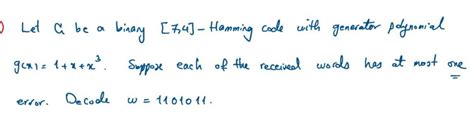 ) Let C₁ be a binary [7,4]-Hamming code with generator polynomial
g(x) = 1+x+x³. Suppose each of the received words has at most one
error. Decode w = 1101011.